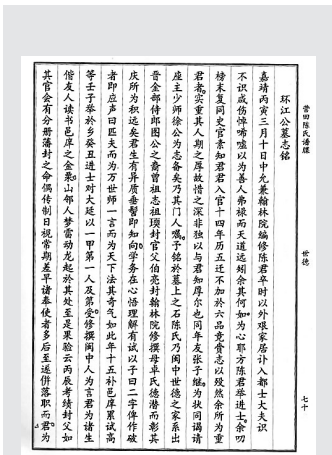 营田陈氏谱牒
世德
七十
环江公墓志铭
嘉靖丙寅三月十日中允兼翰林院编修陈君卒时以外艰家居讣入都士大夫识
不识咸伤悼唏嘘以为善人弗禄而天道远矧余其何如为心耶方陈君举进士余叨
榜末复同史官素知君君入官十四年历五迁不加於六品竟赍志以殁然余所为重
君者实重其人期之厚故惜之深非独以与君知厚尔也同年友张子继为状同谒请
座主少师徐公为志备矣乃其门人嘱予铭於墓上之石陈氏乃闽中世德之家系出
晋金部侍郎图公之裔曾祖志祖琐封官父伯亮封翰林院修撰母卓氏德潜而彰其
庆所为积远矣君生有异质垂髫即知向学务在心悟理解有试以子曰二字俾作破
者即应声曰匹夫而为万世师一言而为天下法其奇气如此年十五补邑庠累试高
等壬子举於乡癸丑进士对大廷以一甲第一人及第受修撰闽中人为言君为诸生
偕友人读书邑庠之金粟山邻人梦雷动龙起於其处至是果验云丙辰考绩封父如
其官会有分册藩封之命偶传制日视常期差早诸奉使者多后至遂併落职而君为